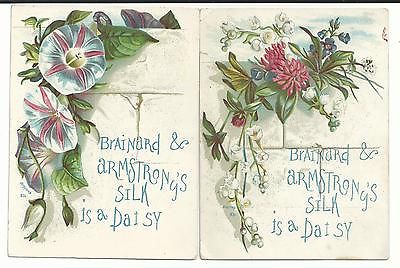 Brainard &
Armstrong's
Silk
is a Daisy
Brainard &
Armstrong's
Silk
is a Daisy